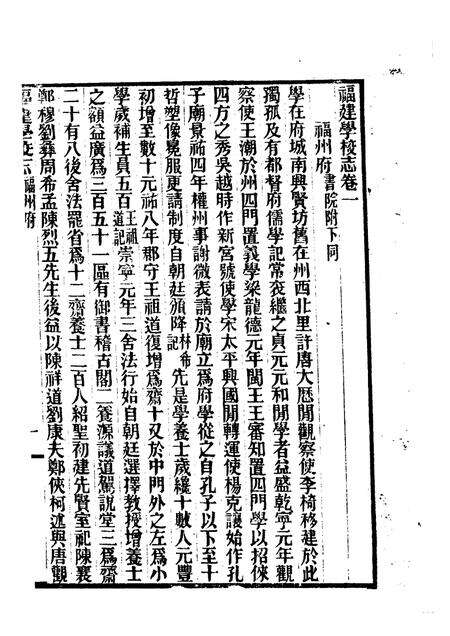 福建學校志卷一
福州府書院附下同
學在府城南興賢坊舊在州西北里許唐大歷閒觀察使李椅移建於此
獨孤及有都督府儒學記常袞繼之貞元元和閒學者益盛乾寧元年觀
察使王潮於州四門置義學梁龍德元年閩王王審知置四門學以招俠
四方之秀吳越時作新宮號使學宋太平興國閒轉運使楊克讓始作孔
子廟景祐四年權州事謝微表請於廟立爲府學從之自孔子以下至十
哲塑像冕服更請制度自朝廷頒降林希記先是學養士歲纔十數人元豐
初增至數十元祐八年郡守王祖道復增爲齋十又於中門外之左爲小
學歲補生員五百王祖道記崇寧元年三舍法行始自朝廷選擇教授增養士
之額益廣爲三百五十一區有御書稽古閣二養源議道駕說堂三爲齋
二十有八後舍法罷省爲十二齋養士二百人紹聖初建先賢室祀陳襄
鄭穆劉彝周希孟陳烈五先生後益以陳祥道劉康夫鄭俠柯述與唐觀
福建學校志 福州府
一